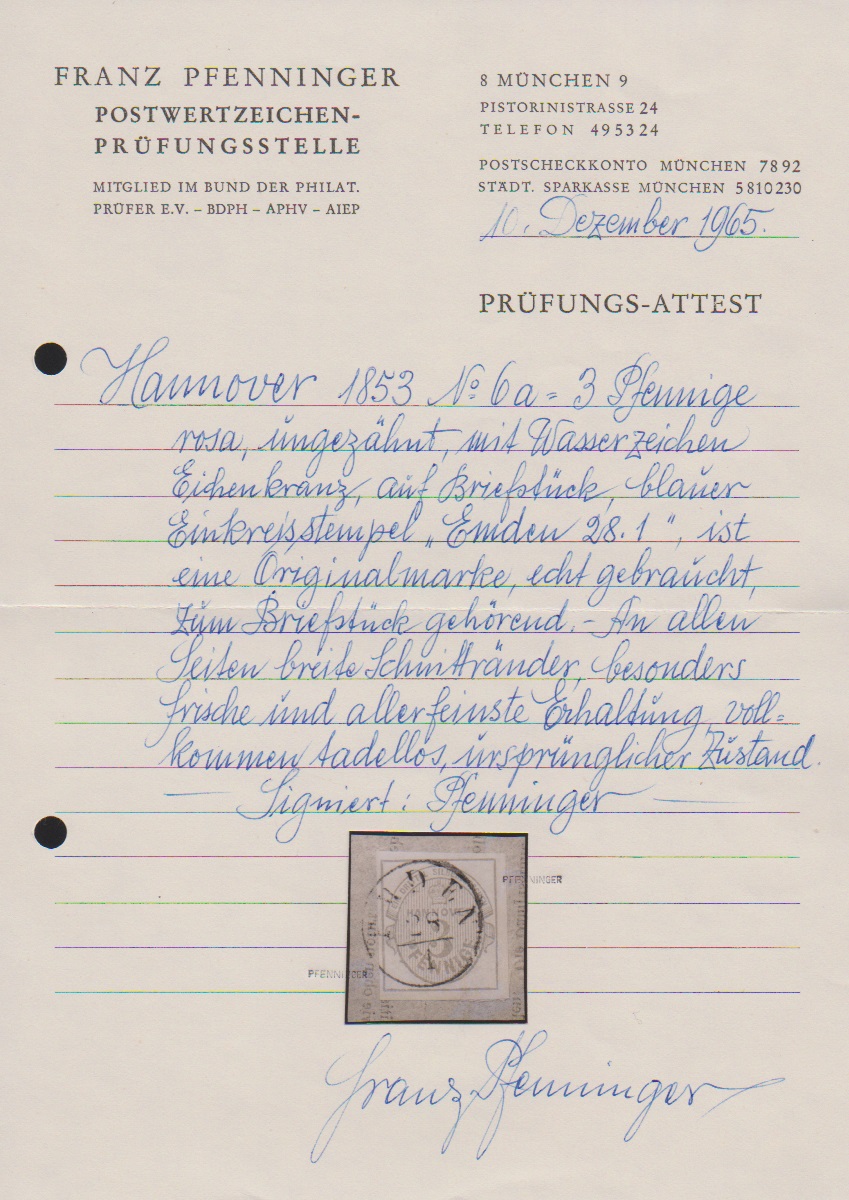 FRANZ PFENNINGER
POSTWERTZEICHEN-
PRÜFUNGSSTELLE
MITGLIED IM BUND DER PHILAT.
PRÜFER E.V. – BDPH – APHV – AIEP
8 MÜNCHEN 9
PISTORINISTRASSE 24
TELEFON 495324
POSTSCHECKKONTO MÜNCHEN 7892
STÄDT. SPARKASSE MÜNCHEN 5810230
10. Dezember 1965.
PRÜFUNGS-ATTEST
Hannover 1853 No 6a = 3 Pfennige
rosa, ungezähnt, mit Wasserzeichen
Eichenkranz, auf Briefstück, blauer
Einkreisstempel „Emden 28.1", ist
eine Originalmarke, echt gebraucht,
zum Briefstück gehörend. – An allen
Seiten breite Schnittränder, besonders
frische und allerfeinste Erhaltung, voll=
kommen tadellos, ursprünglicher Zustand.
— Signiert: Pfenninger —
PFENNINGER
EMDEN
28
1
HANNOVER
3
PFENNIGE
PFENNINGER
Franz Pfenninger